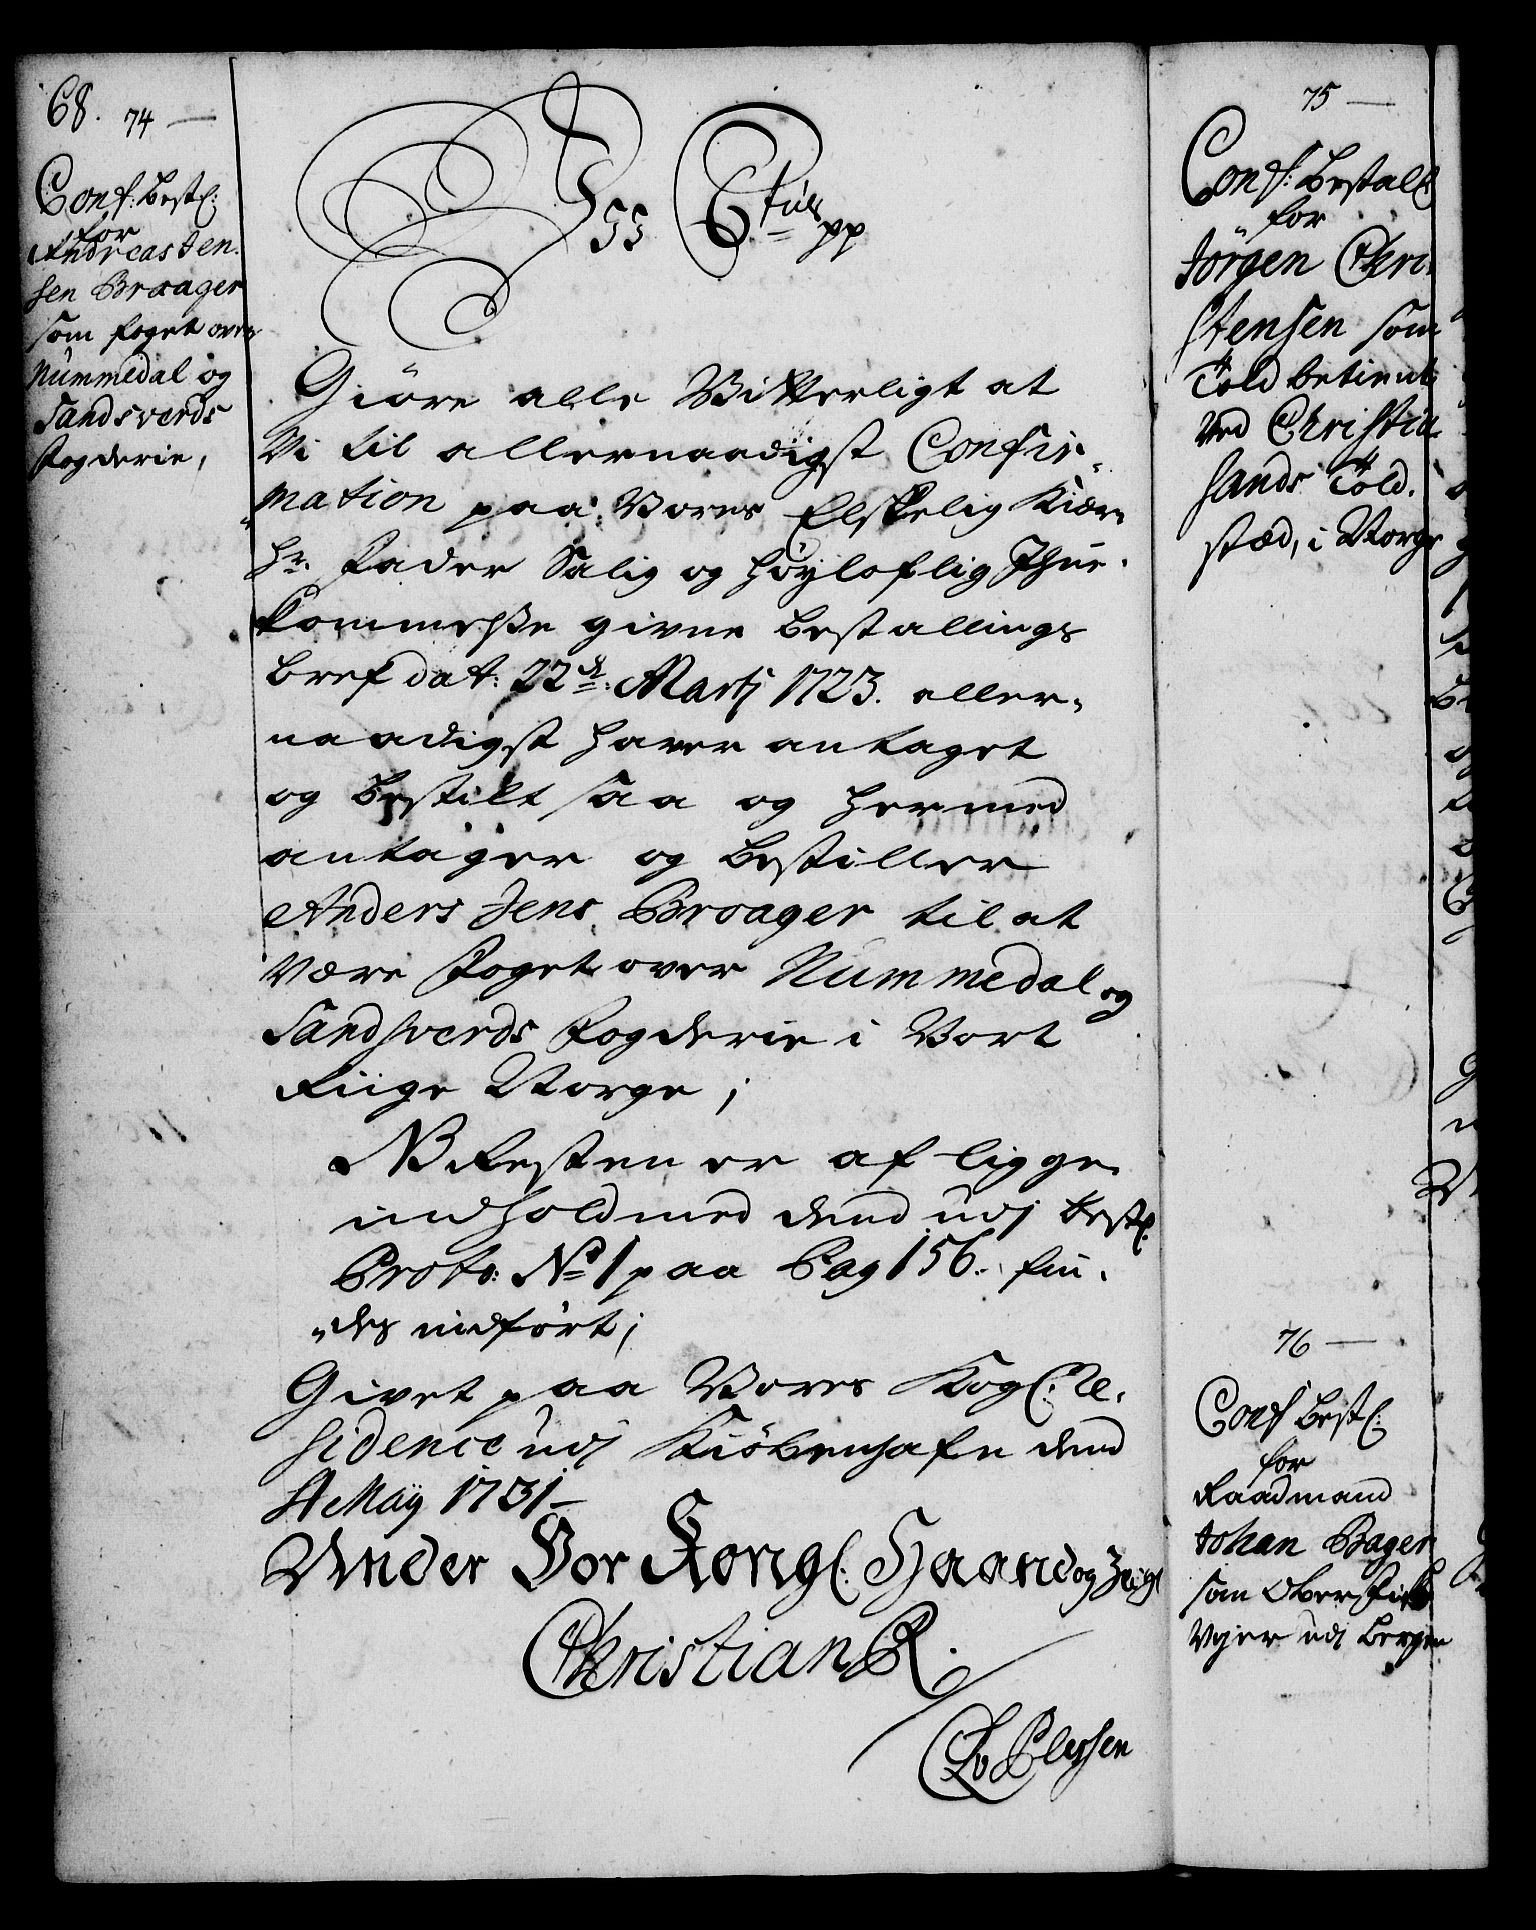 68. 74 —
Conf: Bestl:
for
Andreas Jen-
sen Broager
som foget over
Nummedal og
Sandsverds
fogderie,
C 6tus pp
Giöre alle Vitterligt at
Vi til allernaadigst Confir-
mation paa Vores Elskelig Kiær
Hr. Fader Salig og Høyloflig Ihu-
kommelse givne Bestallings
bref dat: 22de Martj 1723. aller-
naadigst haver antaget
og Bestilt saa og hermed
antager og Bestiller
Anders Jens. Broager til at
Være foget over Nummedal og
Sandsverds fogderie i Vort
Riige Norge;
NB Resten er af lige
indhold med dend udj Bestl:
Proto: No 1 paa Pag 156. fin-
des indført;
Givet paa Vores Kogl: Re-
sidence udj Kiöbenhafn dend
4 May 1731 —
Under Vor Kongl: Haand og Zeigl
Christian R.
CAv Plessen
75 —
Conf: Bestall
for
Jörgen Chri
stensen som
Told betient
Ved Christian
sands Told.
stæd, i Norge
76 —
Conf Bestl:
for
Raadmand
Johan Bager
som Ober
Vejer udj Bergen